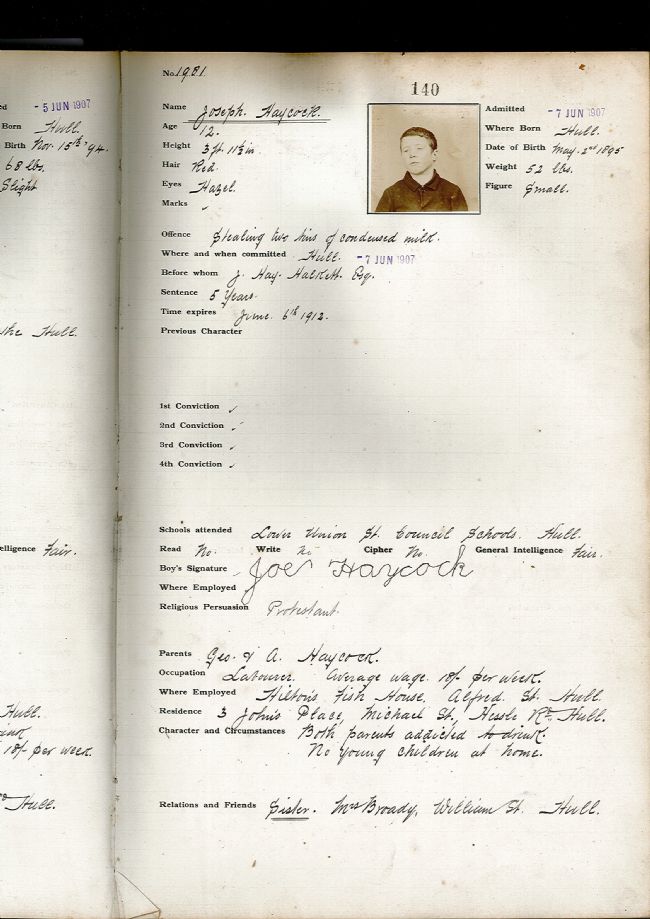 - 5 JUN 1907
Born Hull.
Birth Nov. 15th '94.
68 lbs.
Slight
the Hull.
elligence Fair.
Hull.
18/- per week.
Rd Hull.
No. 1981.
140
Name Joseph. Haycock.
Admitted - 7 JUN 1907
Age 12.
Where Born Hull.
Height 3 ft. 11½ in.
Date of Birth May. 2nd 1895
Hair Red.
Weight 52 lbs.
Eyes Hazel.
Figure Small.
Marks
Offence Stealing two tins of condensed milk.
Where and when committed Hull. - 7 JUN 1907
Before whom J. Hay. Halkett. Esq.
Sentence 5 Years.
Time expires June. 6th 1912.
Previous Character
1st Conviction ✓
2nd Conviction ✓
3rd Conviction ✓
4th Conviction ✓
Schools attended Lower Union St. Council Schools. Hull.
Read No. Write No. Cipher No. General Intelligence Fair.
Boy's Signature Joe Haycock
Where Employed
Religious Persuasion Protestant.
Parents Geo. & A. Haycock.
Occupation Labourer. Average wage. 18/- per week.
Where Employed Hilton's Fish House, Alfred St. Hull.
Residence 3 John's Place, Michael St, Hessle Rd. Hull.
Character and Circumstances Both parents addicted to drink.
No young children at home.
Relations and Friends Sister. Mrs Broady, William St. Hull.